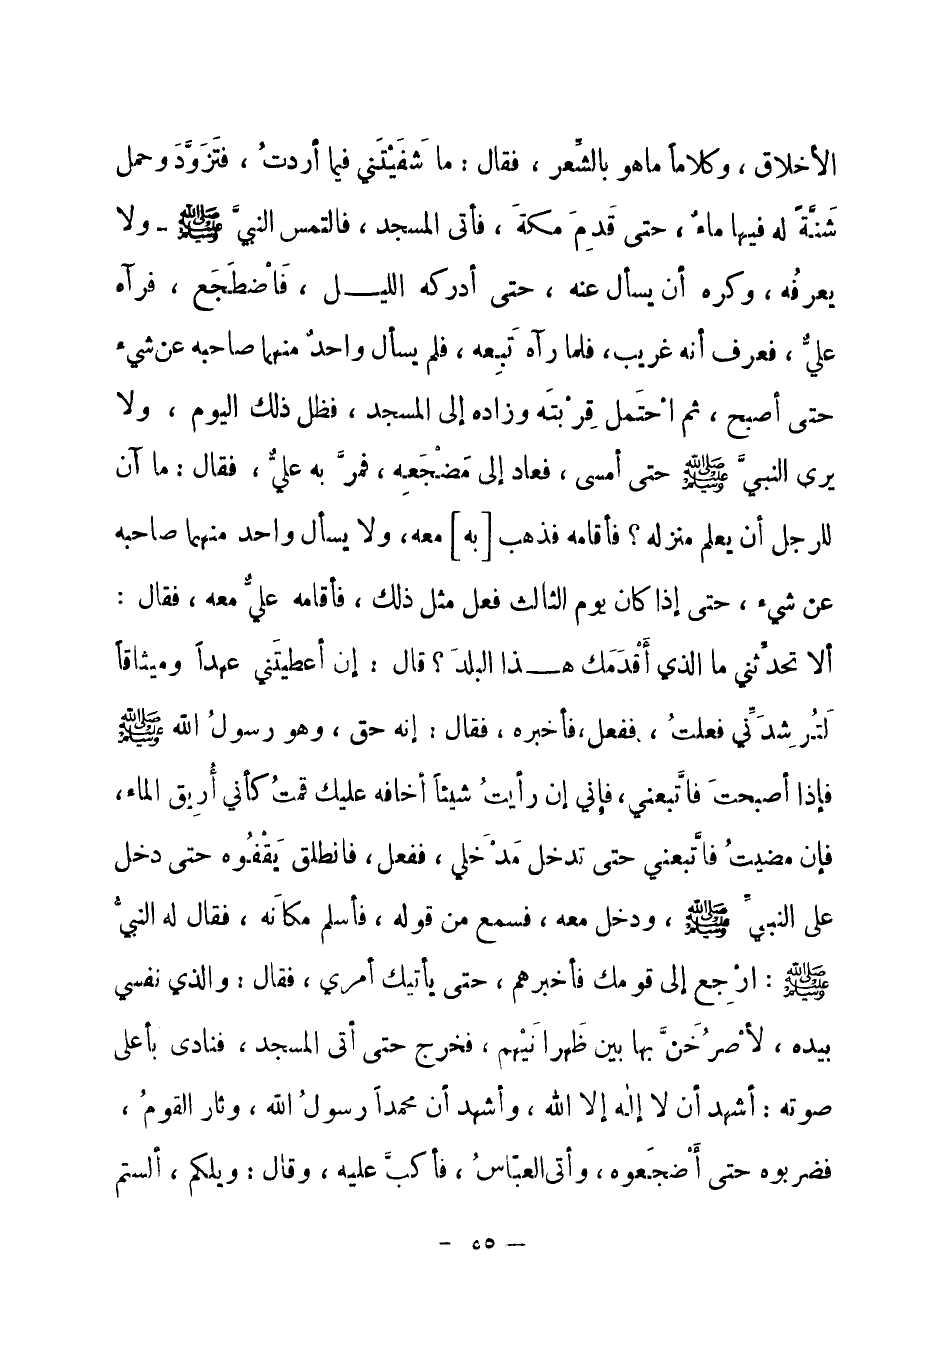 الأخلاق ، وكلاماً ماهو بالشِّعر ، فقال : ما شَفَيْتَني فيما أردتُ ، فَتَزَوَّدَ وحمل
شَنَّةً له فيها ماءٌ ، حتى قَدِمَ مكةَ ، فأتى المسجد ، فالتمس النبيَّ ﷺ - ولا
يعرفُه ، وكره أن يسأل عنه ، حتى أدركه الليـــل ، فَاْضطَجَع ، فرآه
عليٌّ ، فعرف أنه غريب، فلما رآه تَبِعه ، فلم يسأل واحدٌ منهما صاحبه عن شيء
حتى أصبح ، ثم اْحتَمل قِرْبتَه وزاده إلى المسجد ، فظل ذلك اليوم ، ولا
يرى النبيَّ ﷺ حتى أمسى ، فعاد إلى مَضْجَعِه ، فمرَّ به عليٌّ ، فقال : ما آن
للرجل أن يعلم منزله ؟ فأقامه فذهب [به] معه، ولا يسأل واحد منهما صاحبه
عن شيء ، حتى إذا كان يوم الثالث فعل مثل ذلك ، فأقامه عليٌّ معه ، فقال :
ألا تحدِّثني ما الذي أَقْدَمَك هـــذا البلدَ ؟ قال : إن أعطيتَني عهداً وميثاقاً
لَتُرِشدَنِّي فعلتُ ، ففعل،فأخبره ، فقال : إنه حق ، وهو رسولُ الله ﷺ
فإذا أصبحتَ فاتَّبعني، فإني إن رأيتُ شيئاً أخافه عليك قمتُ كأني أُريق الماء،
فإن مضيتُ فاتَّبعني حتى تدخل مَدْخلي ، ففعل، فانطلق يَقْفُوه حتى دخل
على النبيِّ ﷺ ، ودخل معه ، فسمع من قوله ، فأسلم مكانَه ، فقال له النبيُّ
ﷺ : ارْجِع إلى قومك فأخبرهم ، حتى يأتيك أمري ، فقال : والذي نفسي
بيده ، لأَصْرُخَنَّ بها بين ظَهرانَيْهم ، فخرج حتى أتى المسجد ، فنادى بأعلى
صوته : أشهد أن لا إلٰه إلا الله ، وأشهد أن محمداً رسولُ الله ، وثار القومُ ،
فضربوه حتى أَضْجَعوه ، وأتى العبّاسُ ، فأكبَّ عليه ، وقال : ويلكم ، ألستم
— ٥٥ -